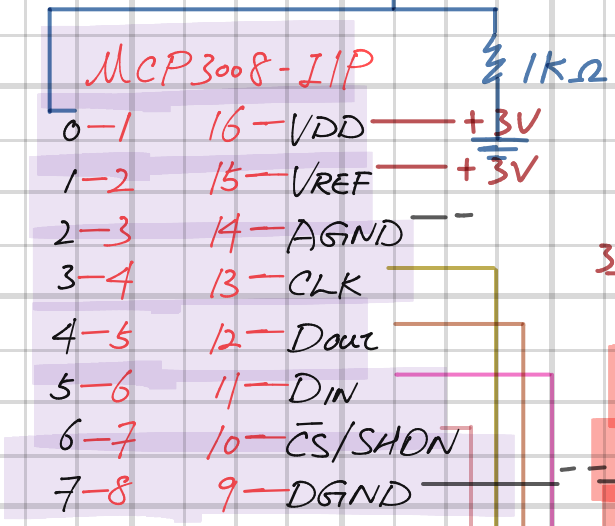 MCP3008-I/P
1KΩ
0-1 16-VDD +3V
1-2 15-VREF +3V
2-3 14-AGND
3-4 13-CLK
4-5 12-Dout
5-6 11-DIN
6-7 10-C̅S̅/SHDN
7-8 9-DGND